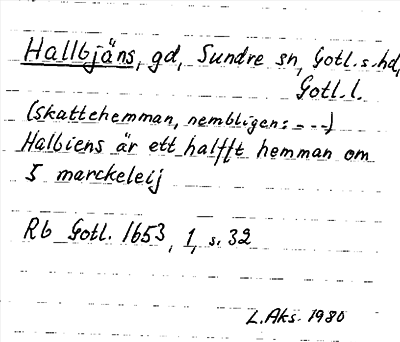 Hallbjäns, gd, Sundre sn, Gotl. s. hd,
Gotl. l.
(skattehemman, nembligen: = - - -)
Halbiens är ett halfft hemman om
5 marckeleij
Rb Gotl. 1653, 1, s. 32
L. Aks. 1980